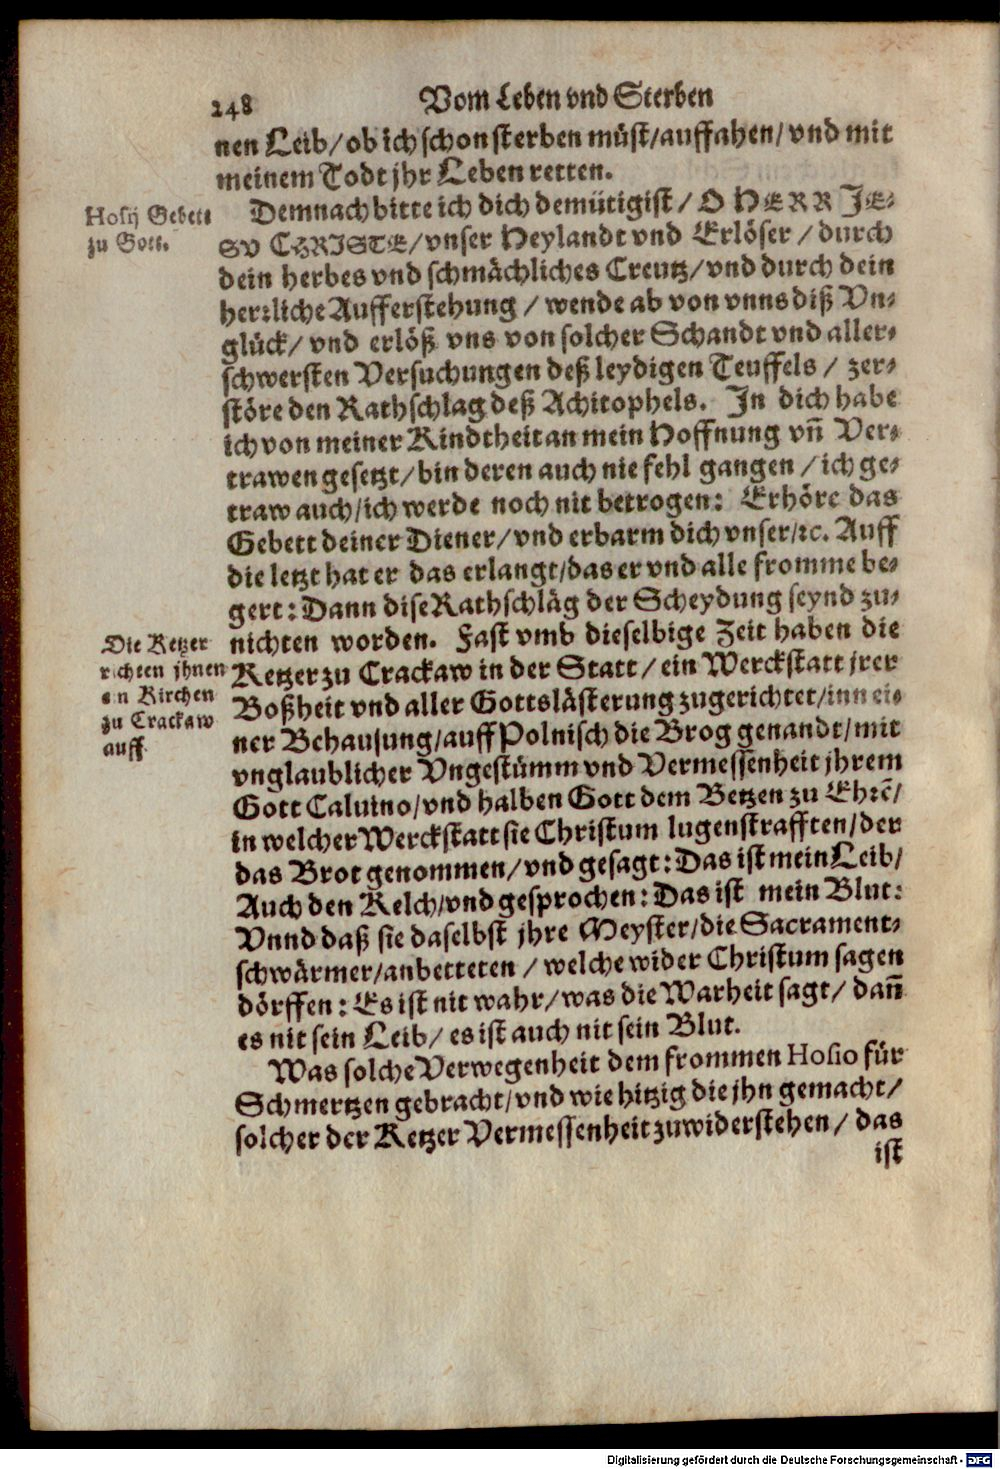 248 Vom Leben vnd Sterben
nen Leib/ ob ich schon sterben müst/ auffahen/ vnd mit
meinem Todt jhr Leben retten.
Hosij Gebett
zu Gott.
Demnach bitte ich dich demütigist/ O HERR JE-
SV CHRISTE/ vnser Heylandt vnd Erlöser/ durch
dein herbes vnd schmächliches Creutz/ vnd durch dein
herrliche Aufferstehung/ wende ab von vnns diß Vn-
glück/ vnd erlöß vns von solcher Schandt vnd aller-
schwersten Versuchungen deß leydigen Teuffels/ zer-
störe den Rathschlag deß Achitophels. In dich habe
ich von meiner Kindtheit an mein Hoffnung vñ Ver-
trawen gesetzt/ bin deren auch nie fehl gangen/ ich ge-
traw auch/ ich werde noch nit betrogen: Erhöre das
Gebett deiner Diener/ vnd erbarm dich vnser/ ꝛc. Auff
die letzt hat er das erlangt/ das er vnd alle fromme be-
gert: Dann dise Rathschläg der Scheydung seynd zu-
nichten worden. Fast vmb dieselbige Zeit haben die
Die Ketzer
richten jhnen
ein Kirchen
zu Crackaw
auff
Ketzer zu Crackaw in der Statt/ ein Werckstatt jrer
Boßheit vnd aller Gottslästerung zugerichtet/ inn ei-
ner Behausung/ auff Polnisch die Brog genandt/ mit
vnglaublicher Vngestümm vnd Vermessenheit jhrem
Gott Caluino/ vnd halben Gott dem Betzen zu Ehrẽ/
in welcher Werckstatt sie Christum lugenstrafften/ der
das Brot genommen/ vnd gesagt: Das ist mein Leib/
Auch den Kelch/ vnd gesprochen: Das ist mein Blut:
Vnnd daß sie daselbst jhre Meyster/ die Sacrament-
schwärmer/ anbetteten/ welche wider Christum sagen
dörffen: Es ist nit wahr/ was die Warheit sagt/ dañ
es nit sein Leib/ es ist auch nit sein Blut.
Was solche Verwegenheit dem frommen Hosio für
Schmertzen gebracht/ vnd wie hitzig die jhn gemacht/
solcher der Ketzer Vermessenheit zuwiderstehen/ das
ist
Digitalisierung gefördert durch die Deutsche Forschungsgemeinschaft - DFG